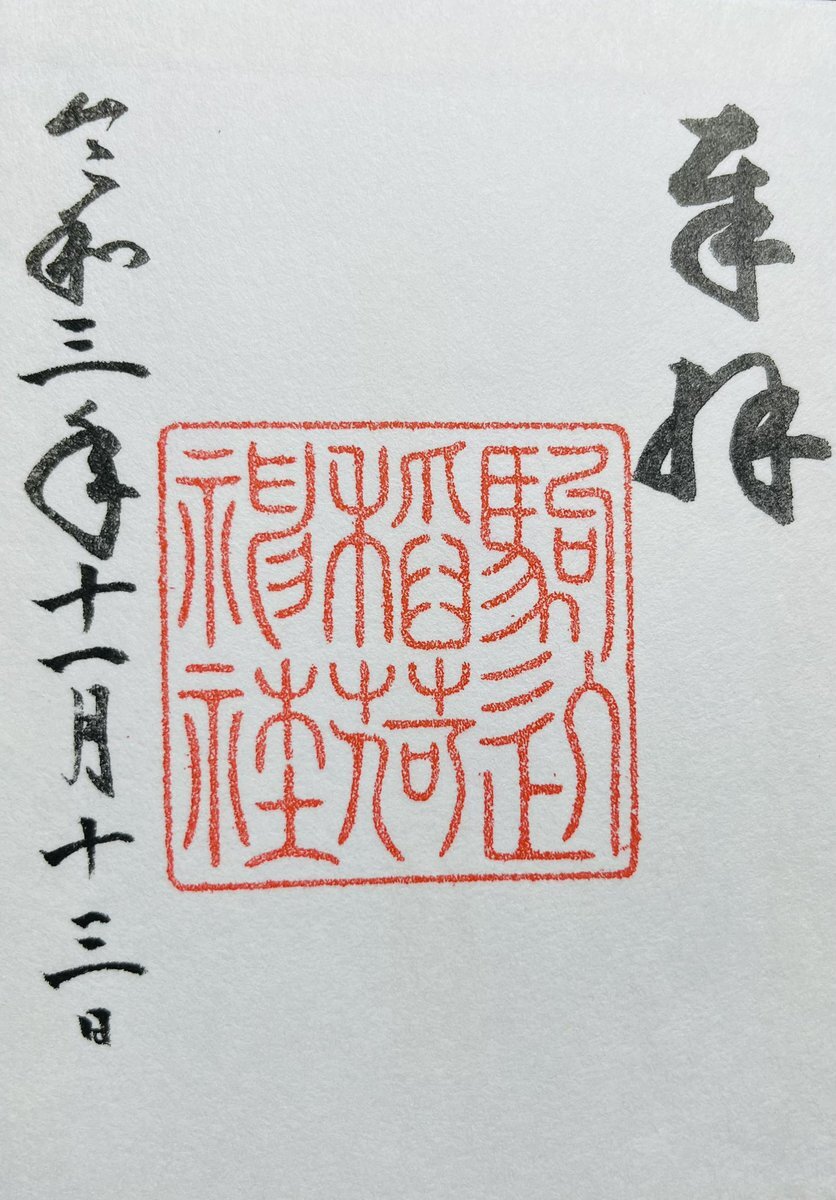 奉拝
駒込
稲荷
神社
令和三年十一月十三日